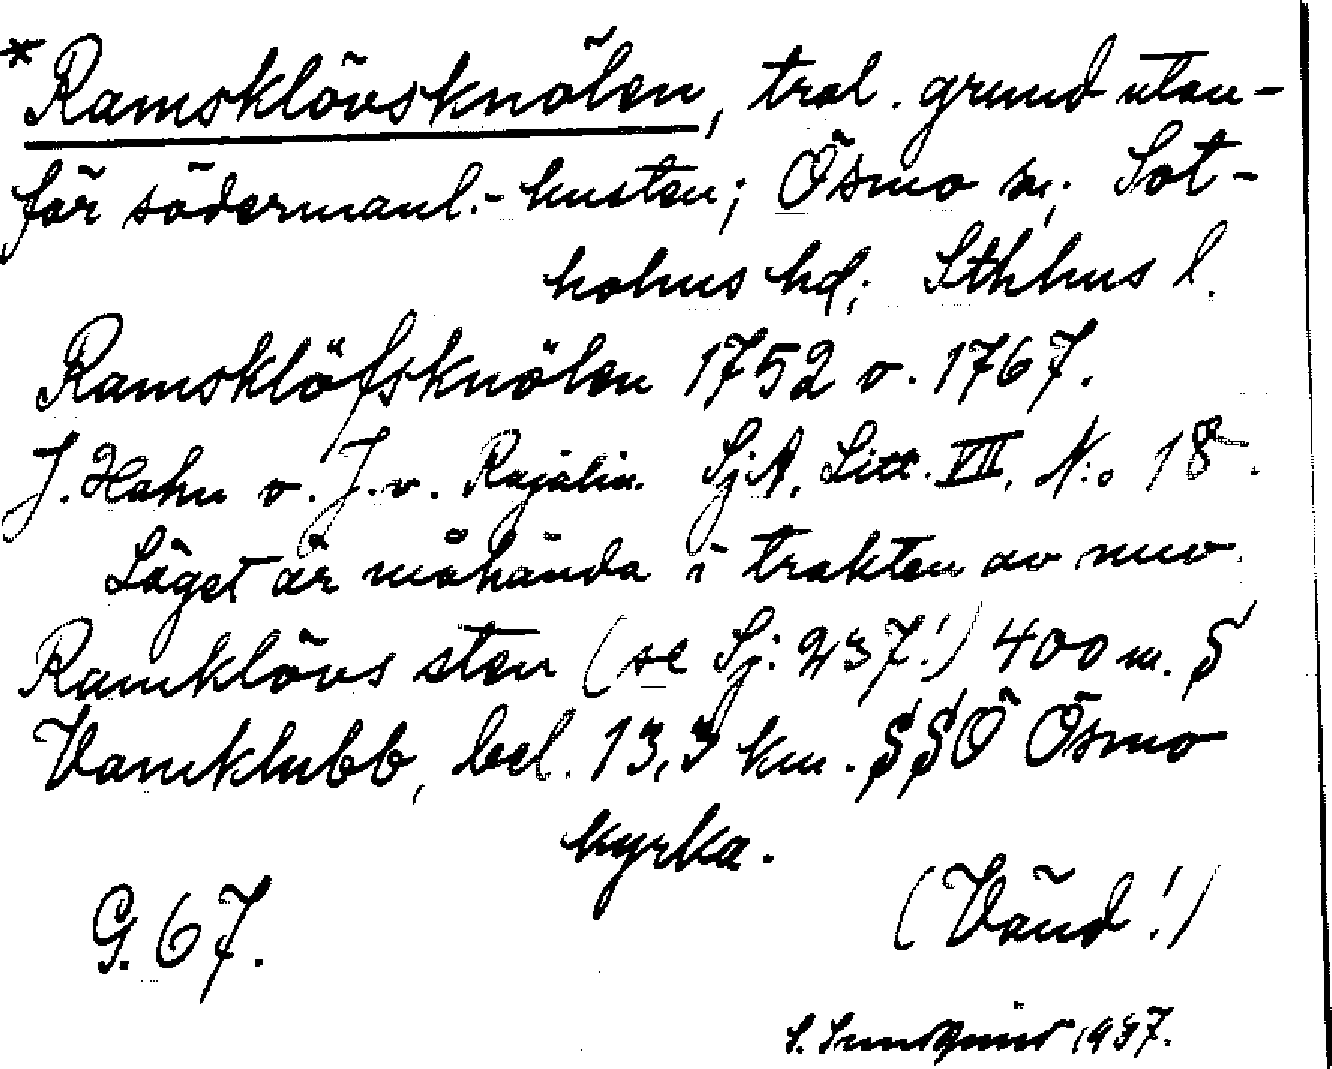 *Ramsklövsknölen, tral. grund utan-
för södermanl.-kusten; Ösmo sn; Sot-
holms hd; Sthlms l.
Ramsklöfsknölen 1752 o. 1767.
J. Hahn o. J. v. Rajalin. SjA. Litt. VII, N:o 18.
Läget är måhända i trakten av nuv.
Ramklövs sten (se Sj. 237!) 400 m. S
Vamklubb, bel. 13,3 km. SSÖ Ösmo
kyrka.
(Vänd!)
G. 67.
S. Sundquist 1937.